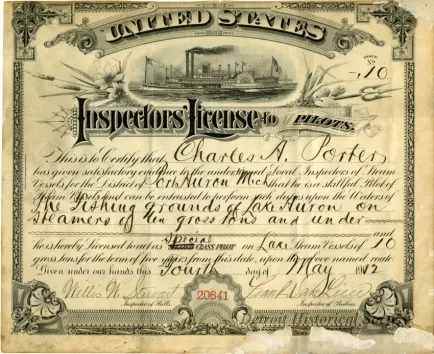 UNITED STATES
ISSUE
No
10
Inspectors License to PILOTS.
This is to Certify that Charles A. Porter
has given satisfactory evidence to the undersigned Local Inspectors of Steam
Vessels for the District of Port Huron Mich that he is a skillful Pilot of
Steam Vessels and can be entrusted to perform such duties upon the Waters of
The Fishing Grounds of Lake Huron on
steamers of ten gross tons and under
and
he is hereby Licensed to act as Special CLASS PILOT on Lake Steam Vessels of 10
gross tons for the term of five years from this date, upon the above named route.
Given under our hands this Fourth day of May 1912
Inspector of Hulls.
20641
Inspector of Boilers
Detroit Historical